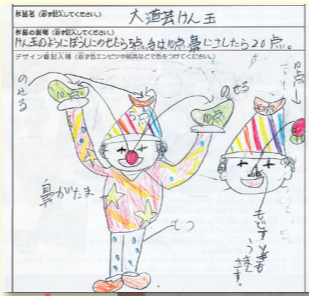 作品名（必ず記入してください。） 大道芸けん玉
作品の説明（必ず記入してください。）
けん玉のようにぼうしにのせたら5点、手は10点 鼻にさしたら20点。
デザイン画記入欄（必ず色エンピツや絵具などで色をつけてください。）
のせる
10点
5点
のせる
10点
鼻がたま
もつ